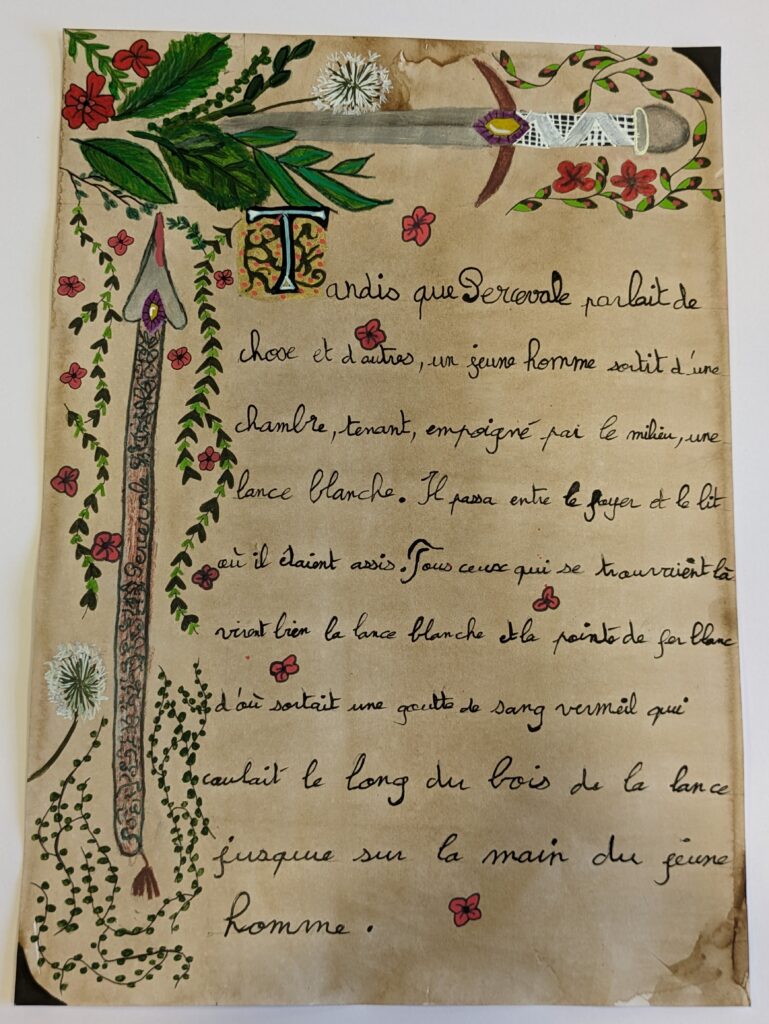 Tandis que Percevale parlait de
chose et d'autres, un jeune homme sortit d'une
chambre, tenant, empoigné par le milieu, une
lance blanche. Il passa entre le foyer et le lit
où il étaient assis. Tous ceux qui se trouvaient là
virent bien la lance blanche et la pointe de fer blanc
d'où sortait une goutte de sang vermeil qui
coulait le long du bois de la lance
jusque sur la main du jeune
homme.
Percevale